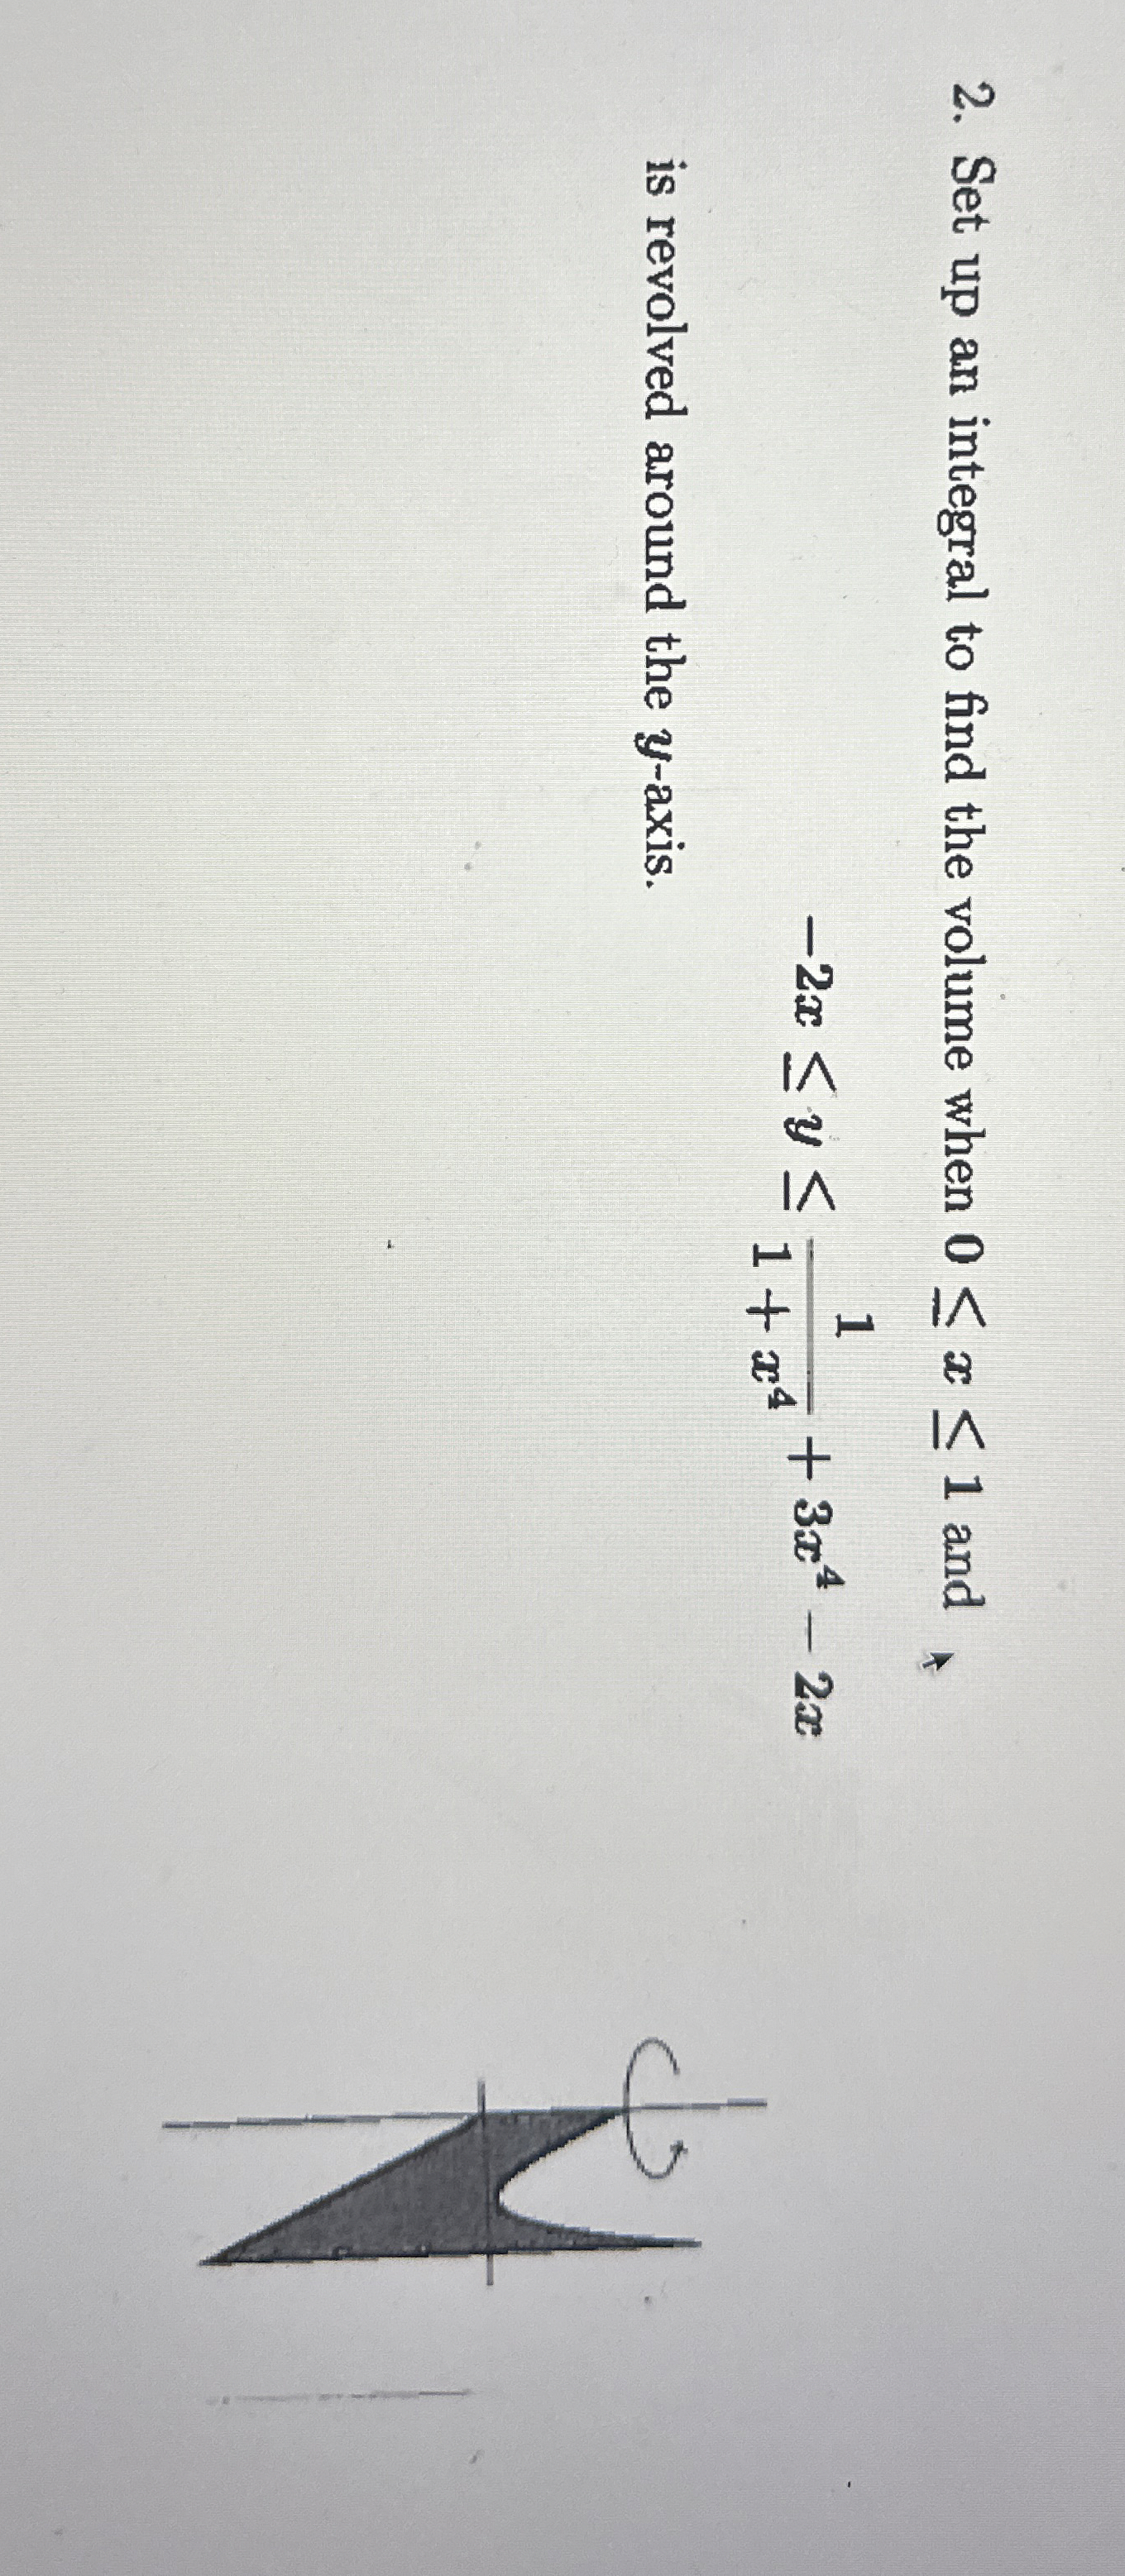 2. Set up an integral to find the volume when 0 ≤ x ≤ 1 and
−2x ≤ y ≤ 1/(1 + x⁴) + 3x⁴ − 2x
is revolved around the y-axis.